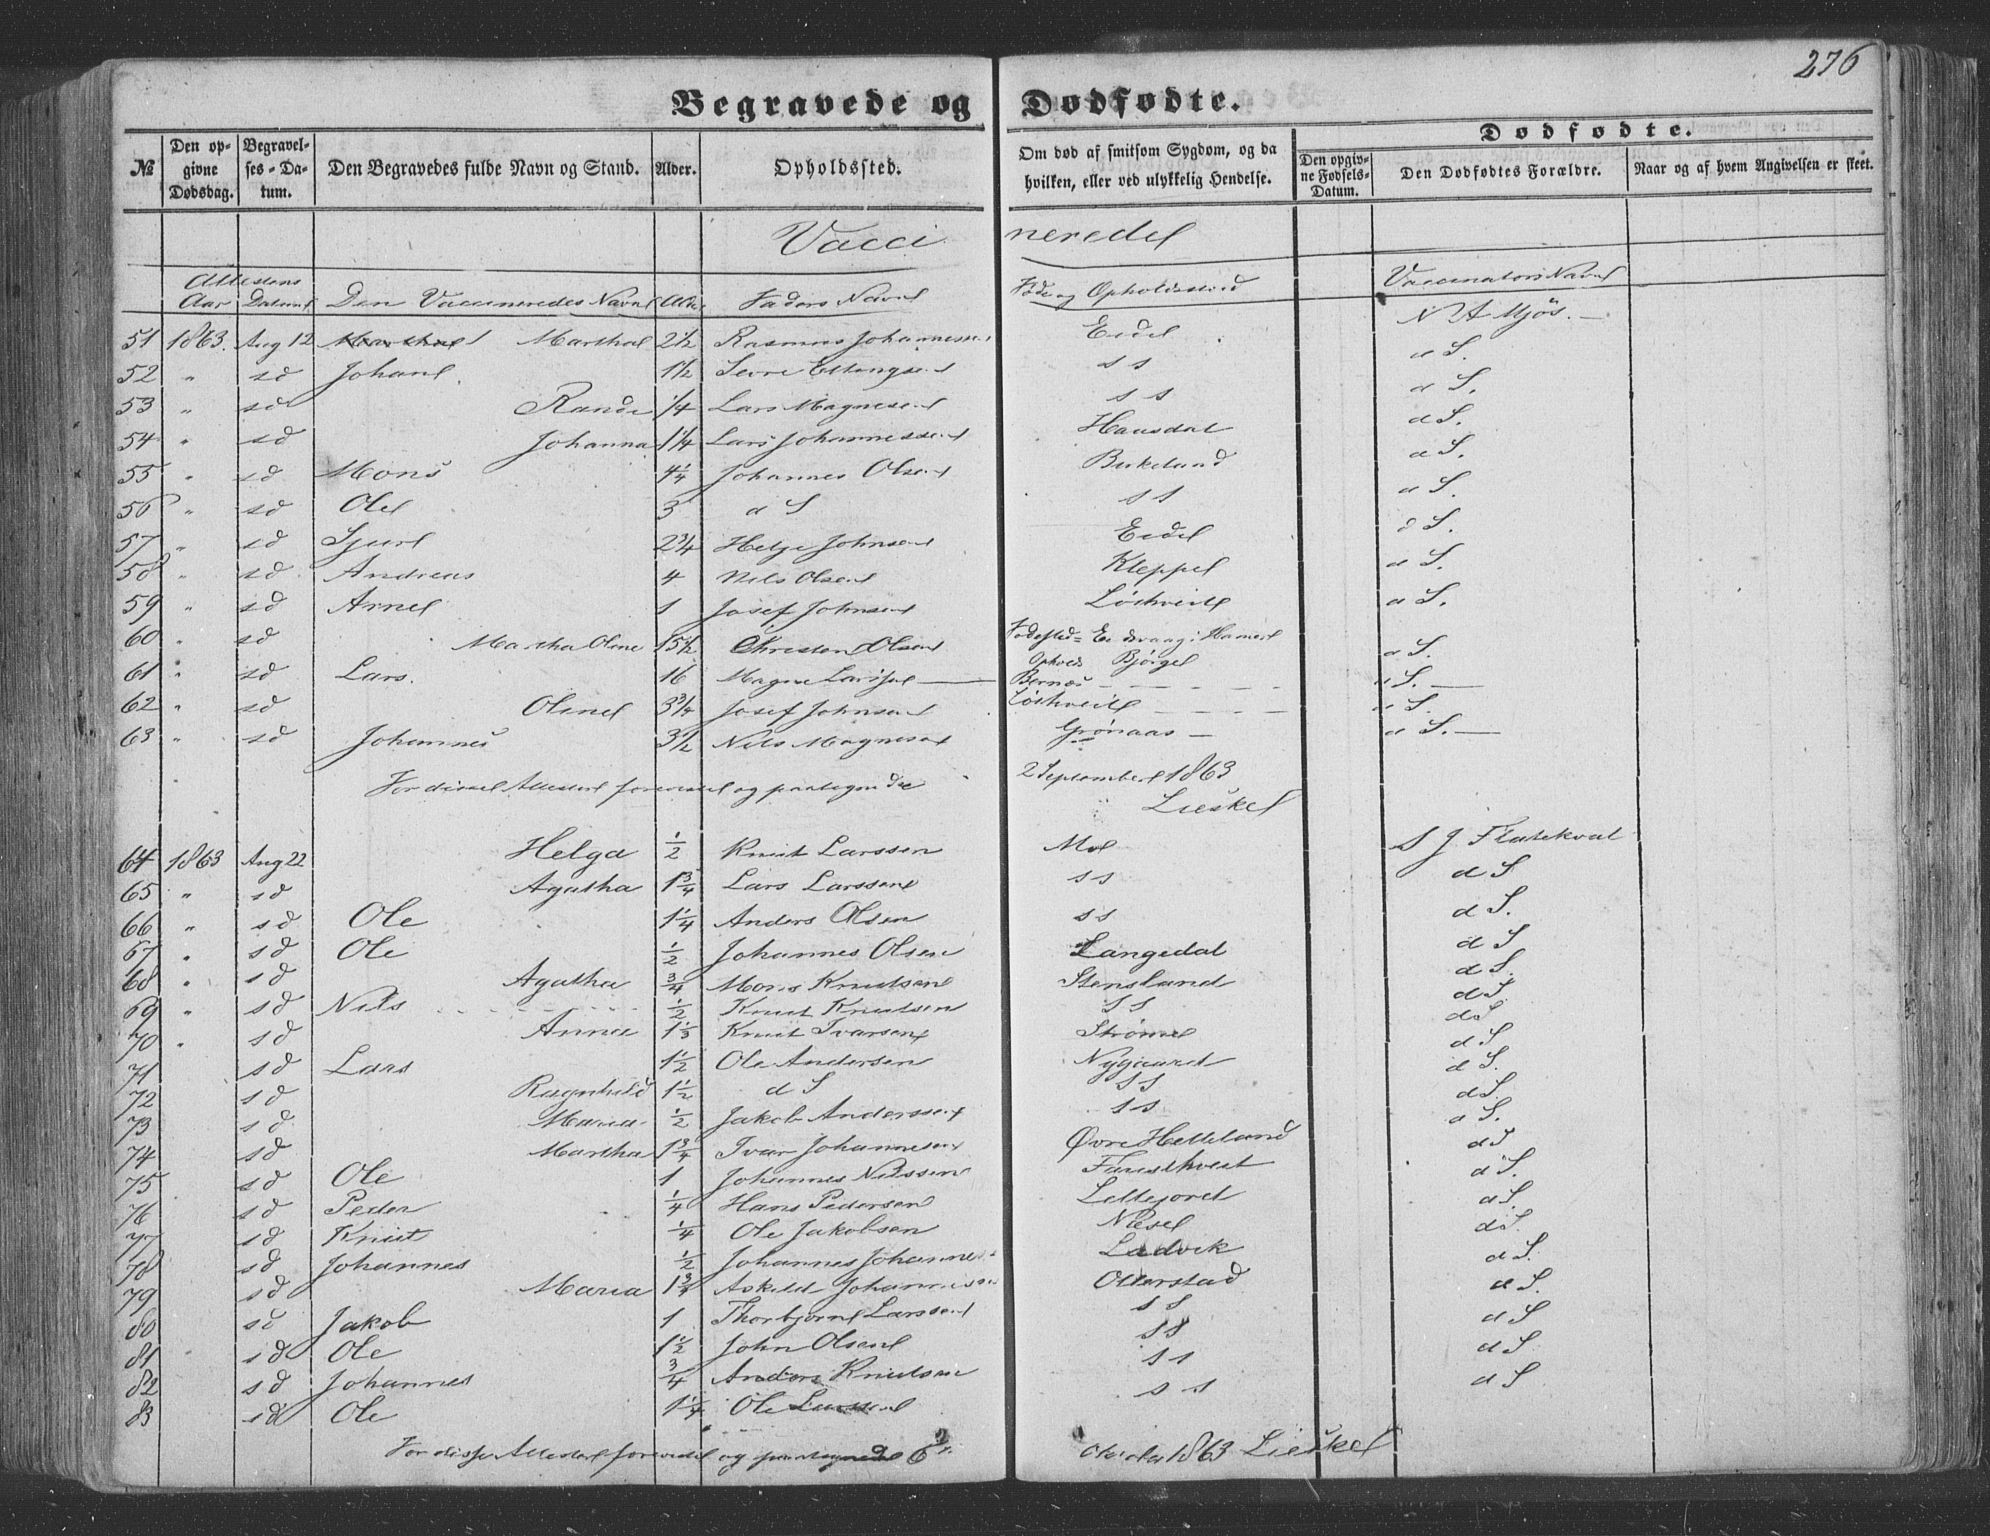 276
Begravede og Dødfødte.
№ Den opgivne Dødsdag. Begravelses-Datum. Den Begravedes fulde Navn og Stand. Alder. Opholdssted. Om død af smitsom Sygdom, og da hvilken, eller ved ulykkelig Hendelse. Dødfødte. Den opgivne Fødsels-Datum. Den Dødfødtes Forældre. Naar og af hvem Angivelsen er skeet.
Vaccineredel
Attestens
Aar Datum Den Vaccineredes Navn Alder Faders Navn Føde og Opholdssted Vaccinators Navn
51 1863. Aug 12 Martha 2½ Rasmus Johannessen Eide N A Mjös.
52 " sd Johan 1½ Ellingsen s s d S.
53 " sd Rande ¼ Lars Magnesen s s d S.
54 " sd Johanna 1¼ Lars Johannessen Hausdal d S.
55 " sd Mons 4¼ Johannes Olsen Birkeland d S.
56 " sd Ole 3 d S s s d S.
57 " sd Sjur 2¾ Helje Johnsen Eide d S.
58 " sd Andreas 4 Nils Olsen Kleppe d S.
59 " sd Arne 1 Josef Johnsen Löthveit d S.
60 " sd Martha Oline 15½ Christen Olsen Födested= Eidsvaag i Hamre
Ophold Bjørge d S.
61 " sd Lars. 16 Magne Larssen Bernes d S.
62 " sd Oline 3¾ Josef Johnsen Löthveit d S.
63 " sd Johannes 3½ Nils Magnesen Grönaas d S.
For disse Attester forevist og paategnede 2 September 1863
Lieske
64 1863 Aug 22 Helga ½ Knut Larssen Mo S J Flatekval
65 " sd Agatha 1¾ Lars Larssen s s d S
66 " sd Ole 1¼ Anders Olsen s s d S.
67 " sd Ole ½ Johannes Olsen Langedal d S
68 " sd Agatha ¾ Mons Knutsen Stensland d S
69 " sd Nils ½ Knut Knutsen s s d S
70 " sd Anna 1⅓ Knut Ivarsen Strömme d S
71 sd Lars 1½ Ole Andersen Nygaard d S
72 sd Ragnhild 1½ d S s s d S.
73 sd Maria ½ Jakob Anderssen s s d S.
74 sd Martha 1¾ Ivar Johannesen Øvre Helleland d S
75 sd Ole 1 Johannes Nilssen d S.
76 sd Peder ¼ Hans Pedersen d S.
77 sd Knut ¼ Ole Jakobsen Næse d S.
78 sd Johannes ½ Johannes Johannes Ladvik d S.
79 sd Maria 1¾ Askeld Johannesen Otterstad d S.
80 sd Jakob 1 Thorbjörn Larssen s s d S
81 sd Ole 1½ John Olsen s s d S
82 sd Johannes ¾ Anders Knutsen s s d S
83 sd Ole 1¼ Ole Larssen s s
For disse Attester forevist og paategnede 6 Oktober 1863 Lieske